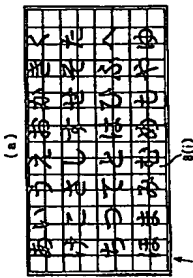 (a)
あいうえおかきく
けこさしすせそた
ちつてとはひふへ
ほまみむめもやゆ
8(i)